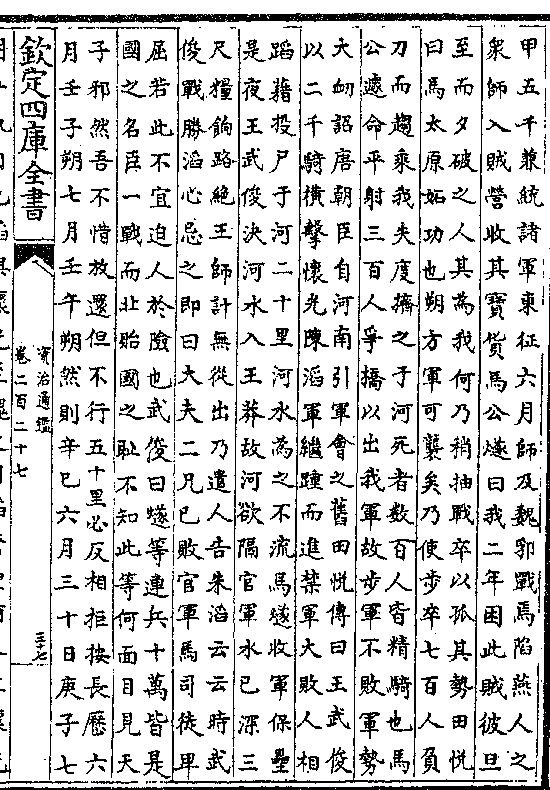 甲五千兼統諸軍東征六月師及魏郭戰焉陷燕人之
衆師入賊營收其寳貨馬公燧曰我二年困此賊彼旦
至而夕破之人其為我何乃稍抽戰卒以孤其勢田悦
曰馬太原妬功也朔方軍可襲矣乃使步卒七百人負
刀而趨乘我失度擠之于河死者数百人皆精騎也馬
公遽命平射三百人爭橋以出我軍故步軍不敗軍勢
大衂詔唐朝臣自河南引軍會之舊田悦傳曰王武俊
以二千騎横擊懐光陳滔軍繼踵而進禁軍大敗人相
蹈藉投尸于河二十里河水為之不流馬燧收軍保壘
是夜王武俊決河水入王莽故河欲隔官軍水已深三
尺糧餉路絶王師計無從出乃遣人告朱滔云云時武
俊戰勝滔心忌之即曰大夫二兄已敗官軍馬司徒卑
屈若此不宜迫人於險也武俊曰燧等連兵十萬皆是
國之名臣一戰而北貽國之耻不知此等何面目見天
子邪然吾不惜放還但不行五十里必反相拒按長歴六
月壬子朔七月壬午朔然則辛巳六月三十日庚子七
欽定四庫全書
資治通鑑
卷二百二十七
三十七